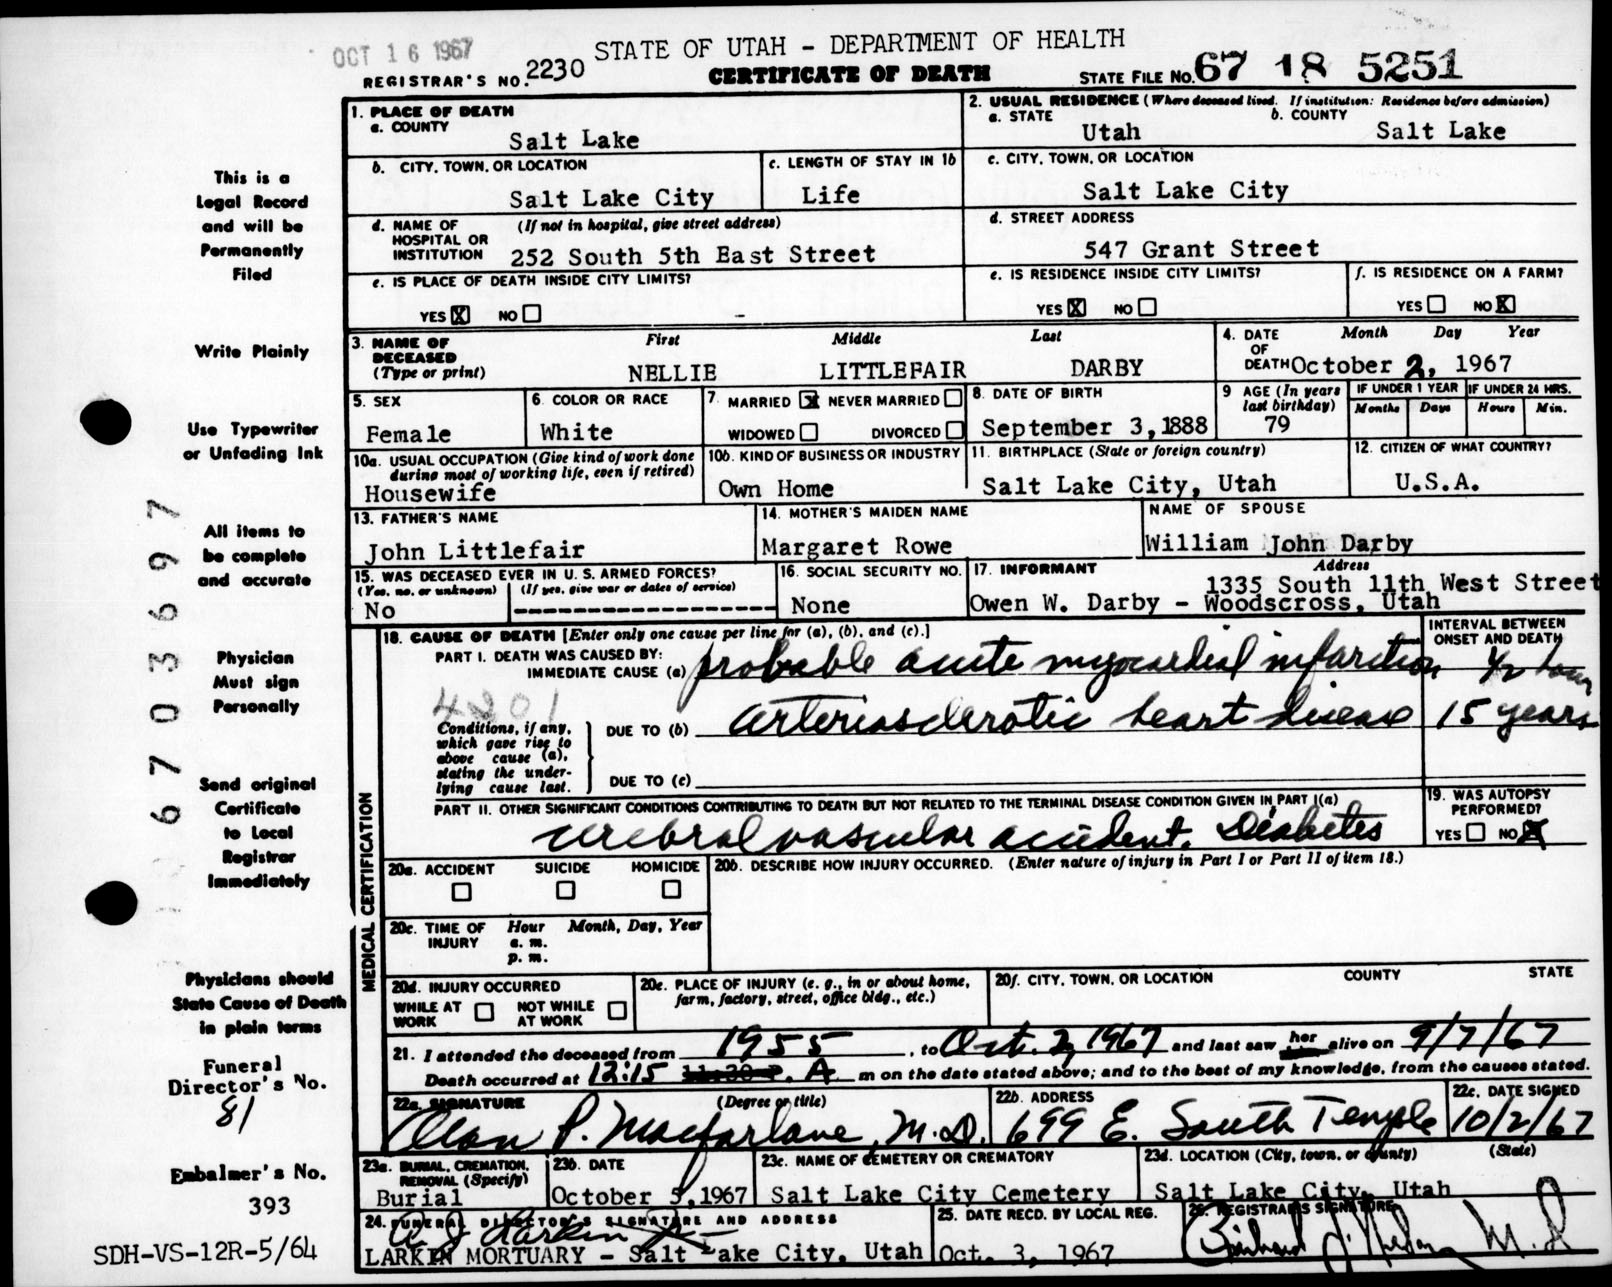 OCT 16 1967
STATE OF UTAH - DEPARTMENT OF HEALTH
REGISTRAR'S NO. 2230
CERTIFICATE OF DEATH
STATE FILE NO. 67 18 5251
1. PLACE OF DEATH
a. COUNTY
Salt Lake
2. USUAL RESIDENCE (Where deceased lived. If institution: Residence before admission)
a. STATE
Utah
b. COUNTY
Salt Lake
b. CITY, TOWN, OR LOCATION
Salt Lake City
c. LENGTH OF STAY IN 1b
Life
c. CITY, TOWN, OR LOCATION
Salt Lake City
d. NAME OF HOSPITAL OR INSTITUTION
(If not in hospital, give street address)
252 South 5th East Street
d. STREET ADDRESS
547 Grant Street
e. IS PLACE OF DEATH INSIDE CITY LIMITS?
YES X NO
e. IS RESIDENCE INSIDE CITY LIMITS?
YES X NO
f. IS RESIDENCE ON A FARM?
YES NO X
3. NAME OF DECEASED
(Type or print)
First Middle Last
NELLIE LITTLEFAIR DARBY
4. DATE OF DEATH
Month Day Year
October 2, 1967
5. SEX
Female
6. COLOR OR RACE
White
7. MARRIED X NEVER MARRIED
WIDOWED DIVORCED
8. DATE OF BIRTH
September 3, 1888
9 AGE (In years last birthday)
79
IF UNDER 1 YEAR
Months Days
IF UNDER 24 HRS.
Hours Min.
10a. USUAL OCCUPATION (Give kind of work done during most of working life, even if retired)
Housewife
10b. KIND OF BUSINESS OR INDUSTRY
Own Home
11. BIRTHPLACE (State or foreign country)
Salt Lake City, Utah
12. CITIZEN OF WHAT COUNTRY?
U.S.A.
13. FATHER'S NAME
John Littlefair
14. MOTHER'S MAIDEN NAME
Margaret Rowe
NAME OF SPOUSE
William John Darby
15. WAS DECEASED EVER IN U. S. ARMED FORCES?
(Yes, no, or unknown) (If yes, give war or dates of service)
No
16. SOCIAL SECURITY NO.
None
17. INFORMANT Address
1335 South 11th West Street
Owen W. Darby - Woodscross, Utah
MEDICAL CERTIFICATION
18. CAUSE OF DEATH [Enter only one cause per line for (a), (b), and (c).]
INTERVAL BETWEEN ONSET AND DEATH
PART I. DEATH WAS CAUSED BY:
IMMEDIATE CAUSE (a) probable acute myocardial infarction 1/2 hour
4201
Conditions, if any, which gave rise to above cause (a), stating the underlying cause last.
DUE TO (b) arteriosclerotic heart disease 15 years
DUE TO (c)
PART II. OTHER SIGNIFICANT CONDITIONS CONTRIBUTING TO DEATH BUT NOT RELATED TO THE TERMINAL DISEASE CONDITION GIVEN IN PART I(a)
cerebral vascular accident. Diabetes
19. WAS AUTOPSY PERFORMED?
YES NO X
20a. ACCIDENT SUICIDE HOMICIDE
20b. DESCRIBE HOW INJURY OCCURRED. (Enter nature of injury in Part I or Part II of item 18.)
20c. TIME OF INJURY
Hour Month, Day, Year
a. m.
p. m.
20d. INJURY OCCURRED
WHILE AT WORK NOT WHILE AT WORK
20e. PLACE OF INJURY (e. g., in or about home, farm, factory, street, office bldg., etc.)
20f. CITY, TOWN, OR LOCATION COUNTY STATE
21. I attended the deceased from 1955, to Oct. 2, 1967 and last saw her alive on 9/7/67
Death occurred at 12:15 11:30 P. A. m on the date stated above; and to the best of my knowledge, from the causes stated.
22a. SIGNATURE (Degree or title)
Alan P. Macfarlane, M.D.
22b. ADDRESS
699 E. South Temple
22c. DATE SIGNED
10/2/67
23a. BURIAL, CREMATION, REMOVAL (Specify)
Burial
23b. DATE
October 5, 1967
23c. NAME OF CEMETERY OR CREMATORY
Salt Lake City Cemetery
23d. LOCATION (City, town, or county) (State)
Salt Lake City, Utah
24. FUNERAL DIRECTOR'S SIGNATURE AND ADDRESS
LARKIN MORTUARY - Salt Lake City, Utah
25. DATE RECD. BY LOCAL REG.
Oct. 3, 1967
26. REGISTRAR'S SIGNATURE
M.D
This is a
Legal Record
and will be
Permanently
Filed
Write Plainly
Use Typewriter
or Unfading Ink
All items to
be complete
and accurate
Physician
Must sign
Personally
Send original
Certificate
to Local
Registrar
Immediately
Physicians should
State Cause of Death
in plain terms
Funeral
Director's No.
81
Embalmer's No.
393
SDH-VS-12R-5/64
67 0 3 6 9 7